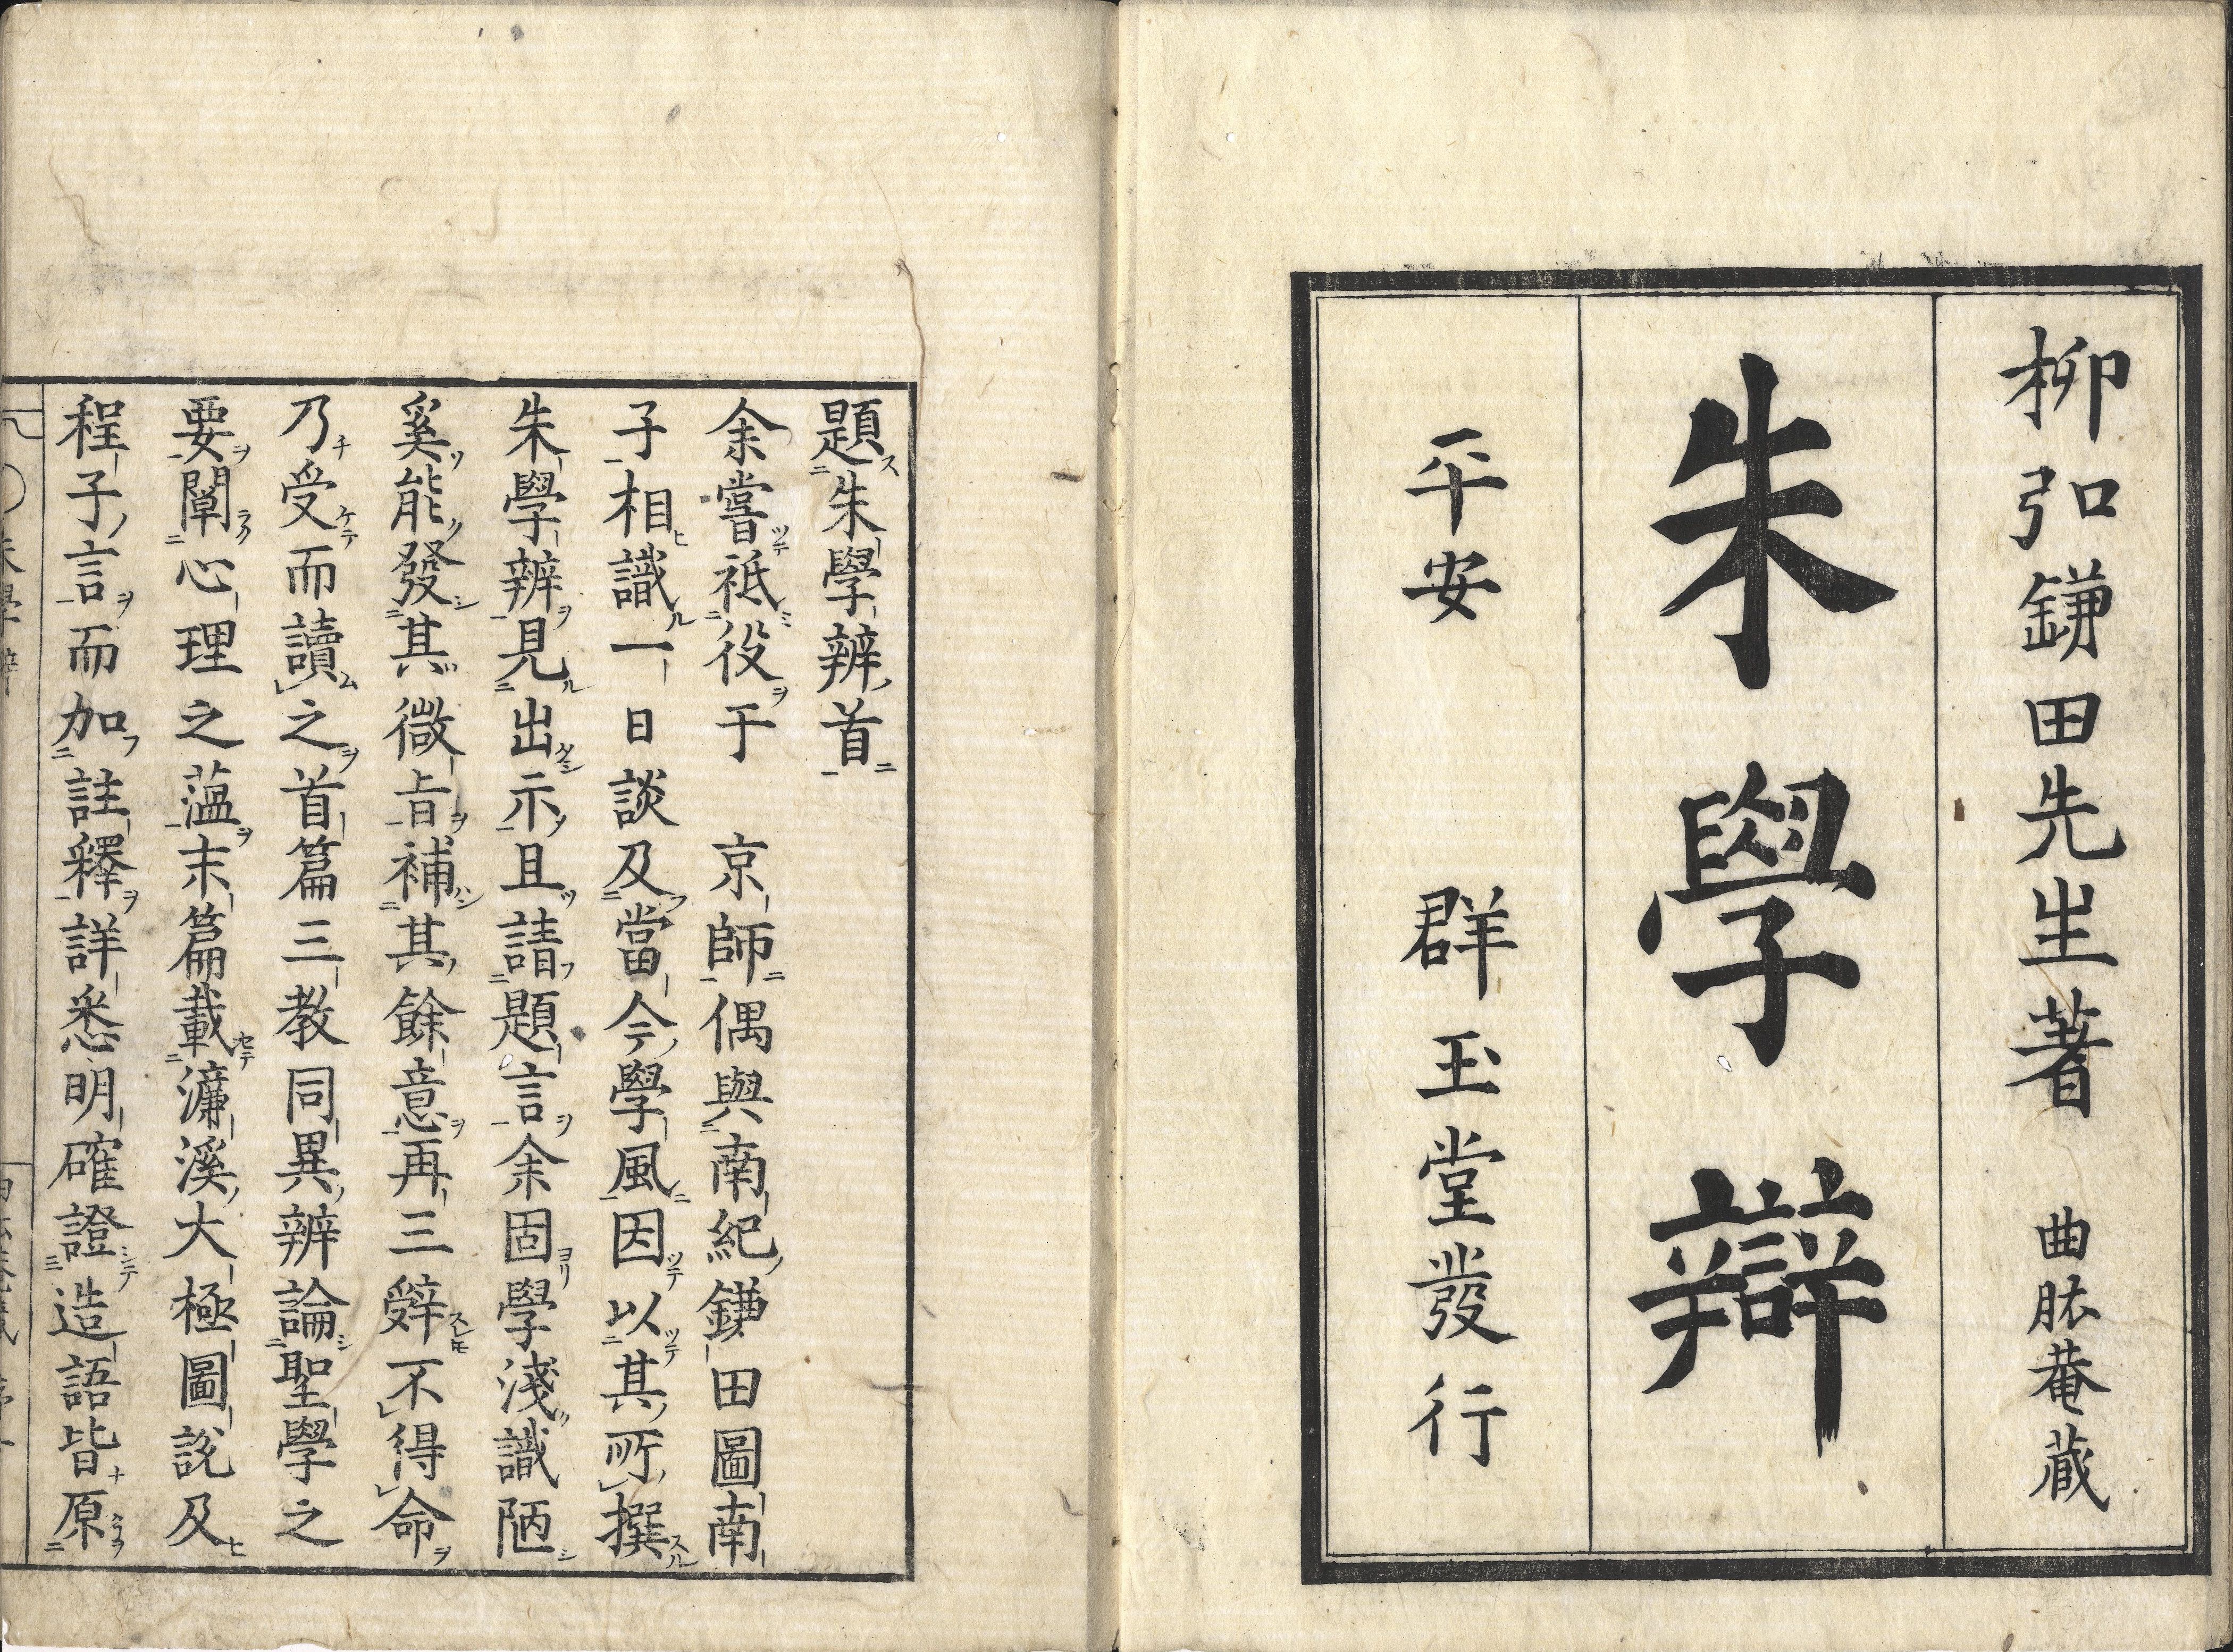 柳弘鎌田先生著 曲肱菴蔵
朱學辯
平安 群玉堂發行
題朱學辨首
余嘗祗役于 京師偶與南紀鎌田圖南
子相識一日談及當今學風因以其所撰
朱學辨見出示且請題言余固學淺識陋
奚能發其微旨補其餘意再三辭不得命
乃受而讀之首篇三教同異辨論聖學之
要闡心理之薀末篇載濂溪大極圖說及
程子言而加註釋詳悉明確證造語皆原